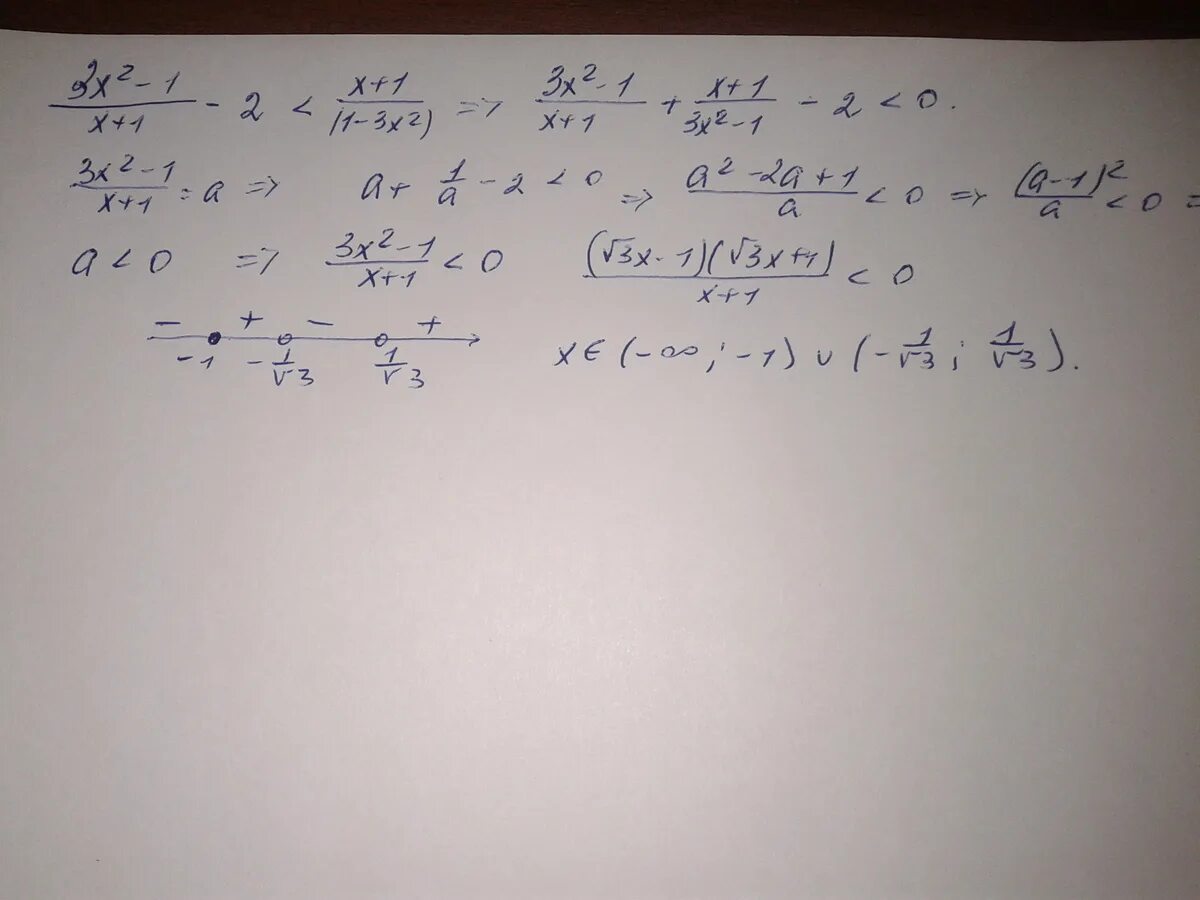 (3x²-1)/(x+1) - 2 < (x+1)/(1-3x²) => (3x²-1)/(x+1) + (x+1)/(3x²-1) - 2 < 0.
(3x²-1)/(x+1) = a => a + 1/a - 2 < 0 => (a²-2a+1)/a < 0 => (a-1)²/a < 0 =
a < 0 => (3x²-1)/(x+1) < 0 (√3x-1)(√3x+1)/(x+1) < 0
- + - +
-1 -1/√3 1/√3 x∈(-∞;-1)∪(-1/√3; 1/√3).